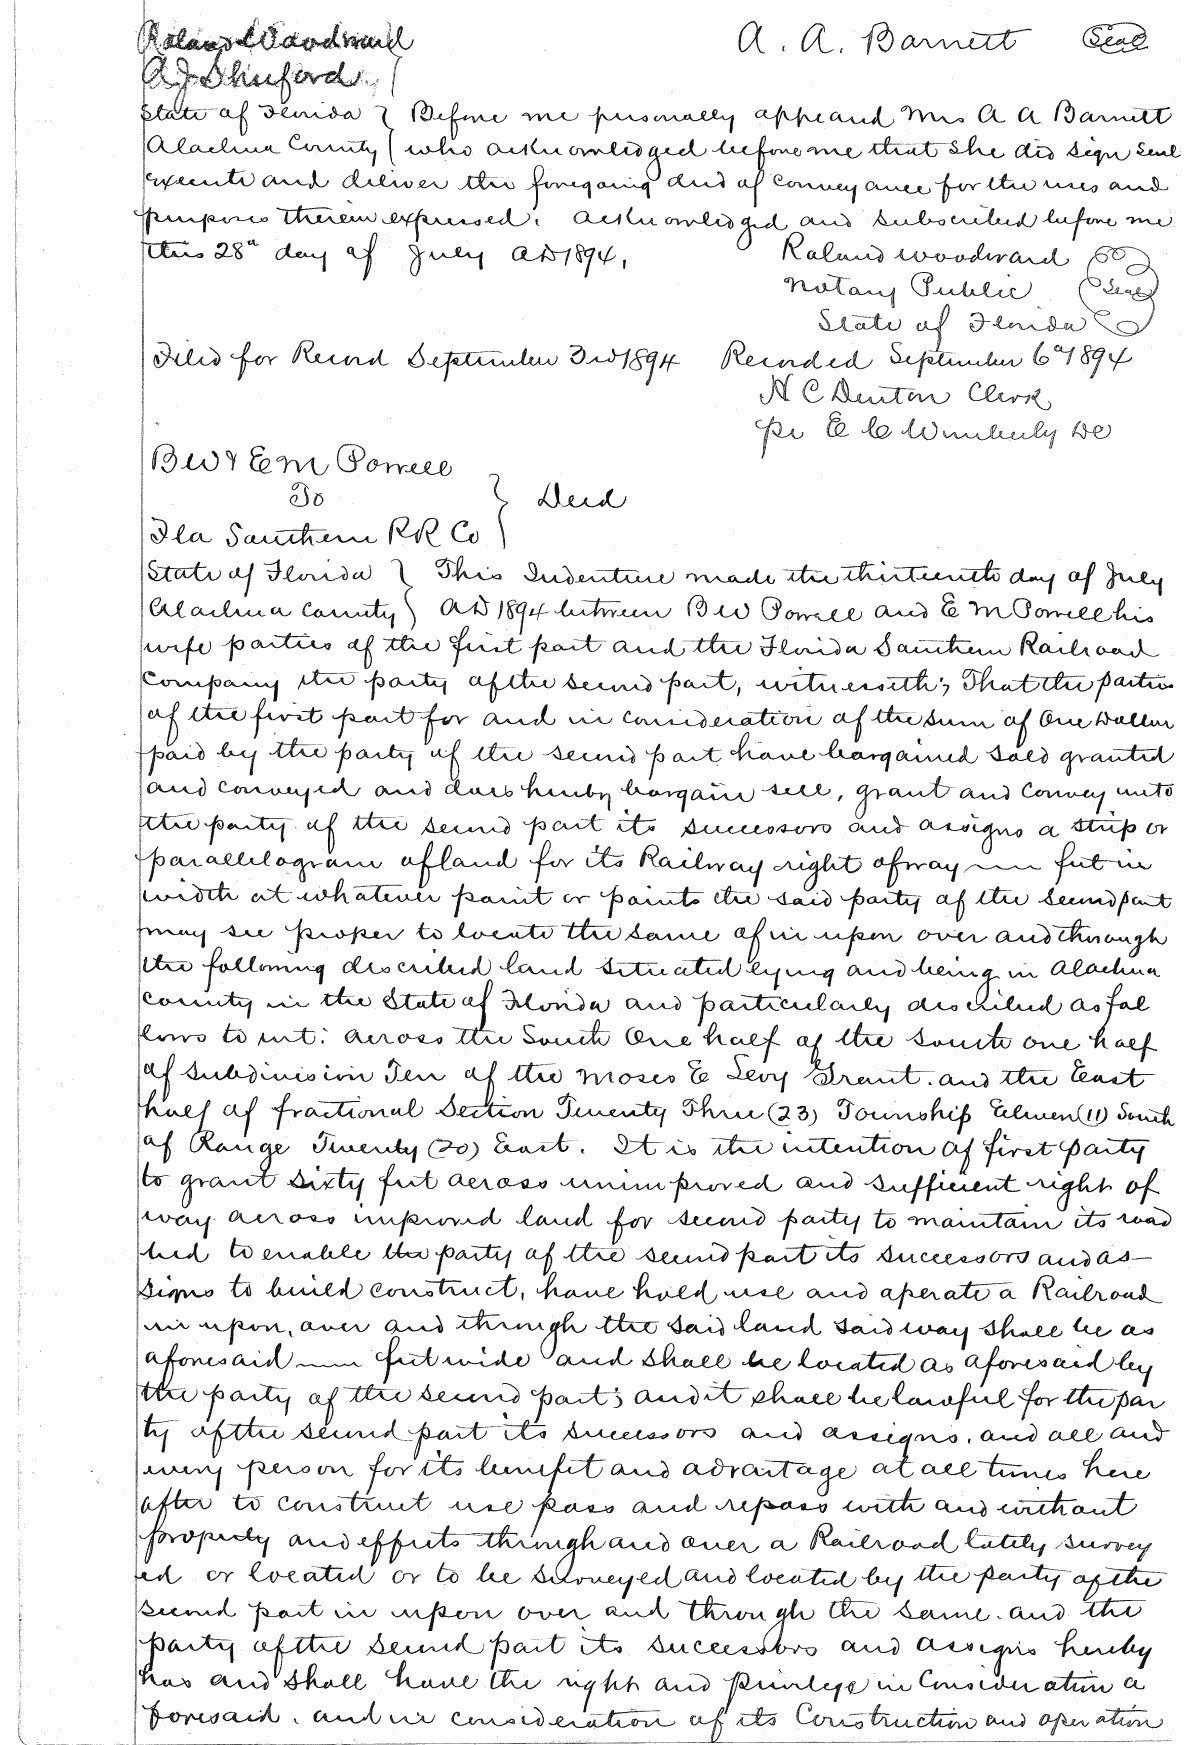 Roland Woodward A. A. Barnett Seal
A J Shuford
State of Florida } Before me personally appeard Mrs A A Barnett
Alachua County } who acknowledged before me that she did sign seal
execute and deliver the foregoing deed of conveyance for the uses and
purposes therein expressed. Acknowledged and subscribed before me
this 28" day of July AD 1894. Roland Woodward
Notary Public Seal
State of Florida
Filed for Record September 3rd 1894 Recorded September 6" 1894
H C Denton Clerk
per E C Wimberly DC
B W & E M Powell
To } Deed
Fla Southern R R Co
State of Florida } This Indenture made the thirteenth day of July
Alachua County } AD 1894 between B W Powell and E M Powell his
wife parties of the first part and the Florida Southern Railroad
Company the party of the second part, witnesseth; That the parties
of the first part for and in consideration of the sum of One Dollar
paid by the party of the second part have bargained sold granted
and conveyed and does hereby bargain sell, grant and convey unto
the party of the second part its successors and assigns a strip or
parallelogram of land for its Railway right of way — feet in
width at whatever point or points the said party of the second part
may see proper to locate the same of in upon over and through
the following described land situated lying and being in Alachua
County in the State of Florida and particularly described as fol
lows to wit: across the South One half of the south one half
of subdivision Ten of the Moses E Levy Grant. and the East
half of fractional Section Twenty Three (23) Township Eleven (11) South
of Range Twenty (20) East. It is the intention of first party
to grant sixty feet across unimproved and sufficient right of
way across improved land for second party to maintain its road
bed to enable the party of the second part its successors and as—
signs to build construct, have hold use and operate a Railroad
in upon, over and through the said land said way shall be as
aforesaid — feet wide and shall be located as aforesaid by
the party of the second part; and it shall be lawful for the par
ty of the second part its successors and assigns, and all and
every person for its benefit and advantage at all times here
after to construct use pass and repass with and without
property and effects through and over a Railroad lately survey
ed or located or to be surveyed and located by the party of the
second part in upon over and through the same. and the
party of the second part its successors and assigns hereby
has and shall have the right and privilege in consideration a
foresaid. and in consideration of its Construction and operation